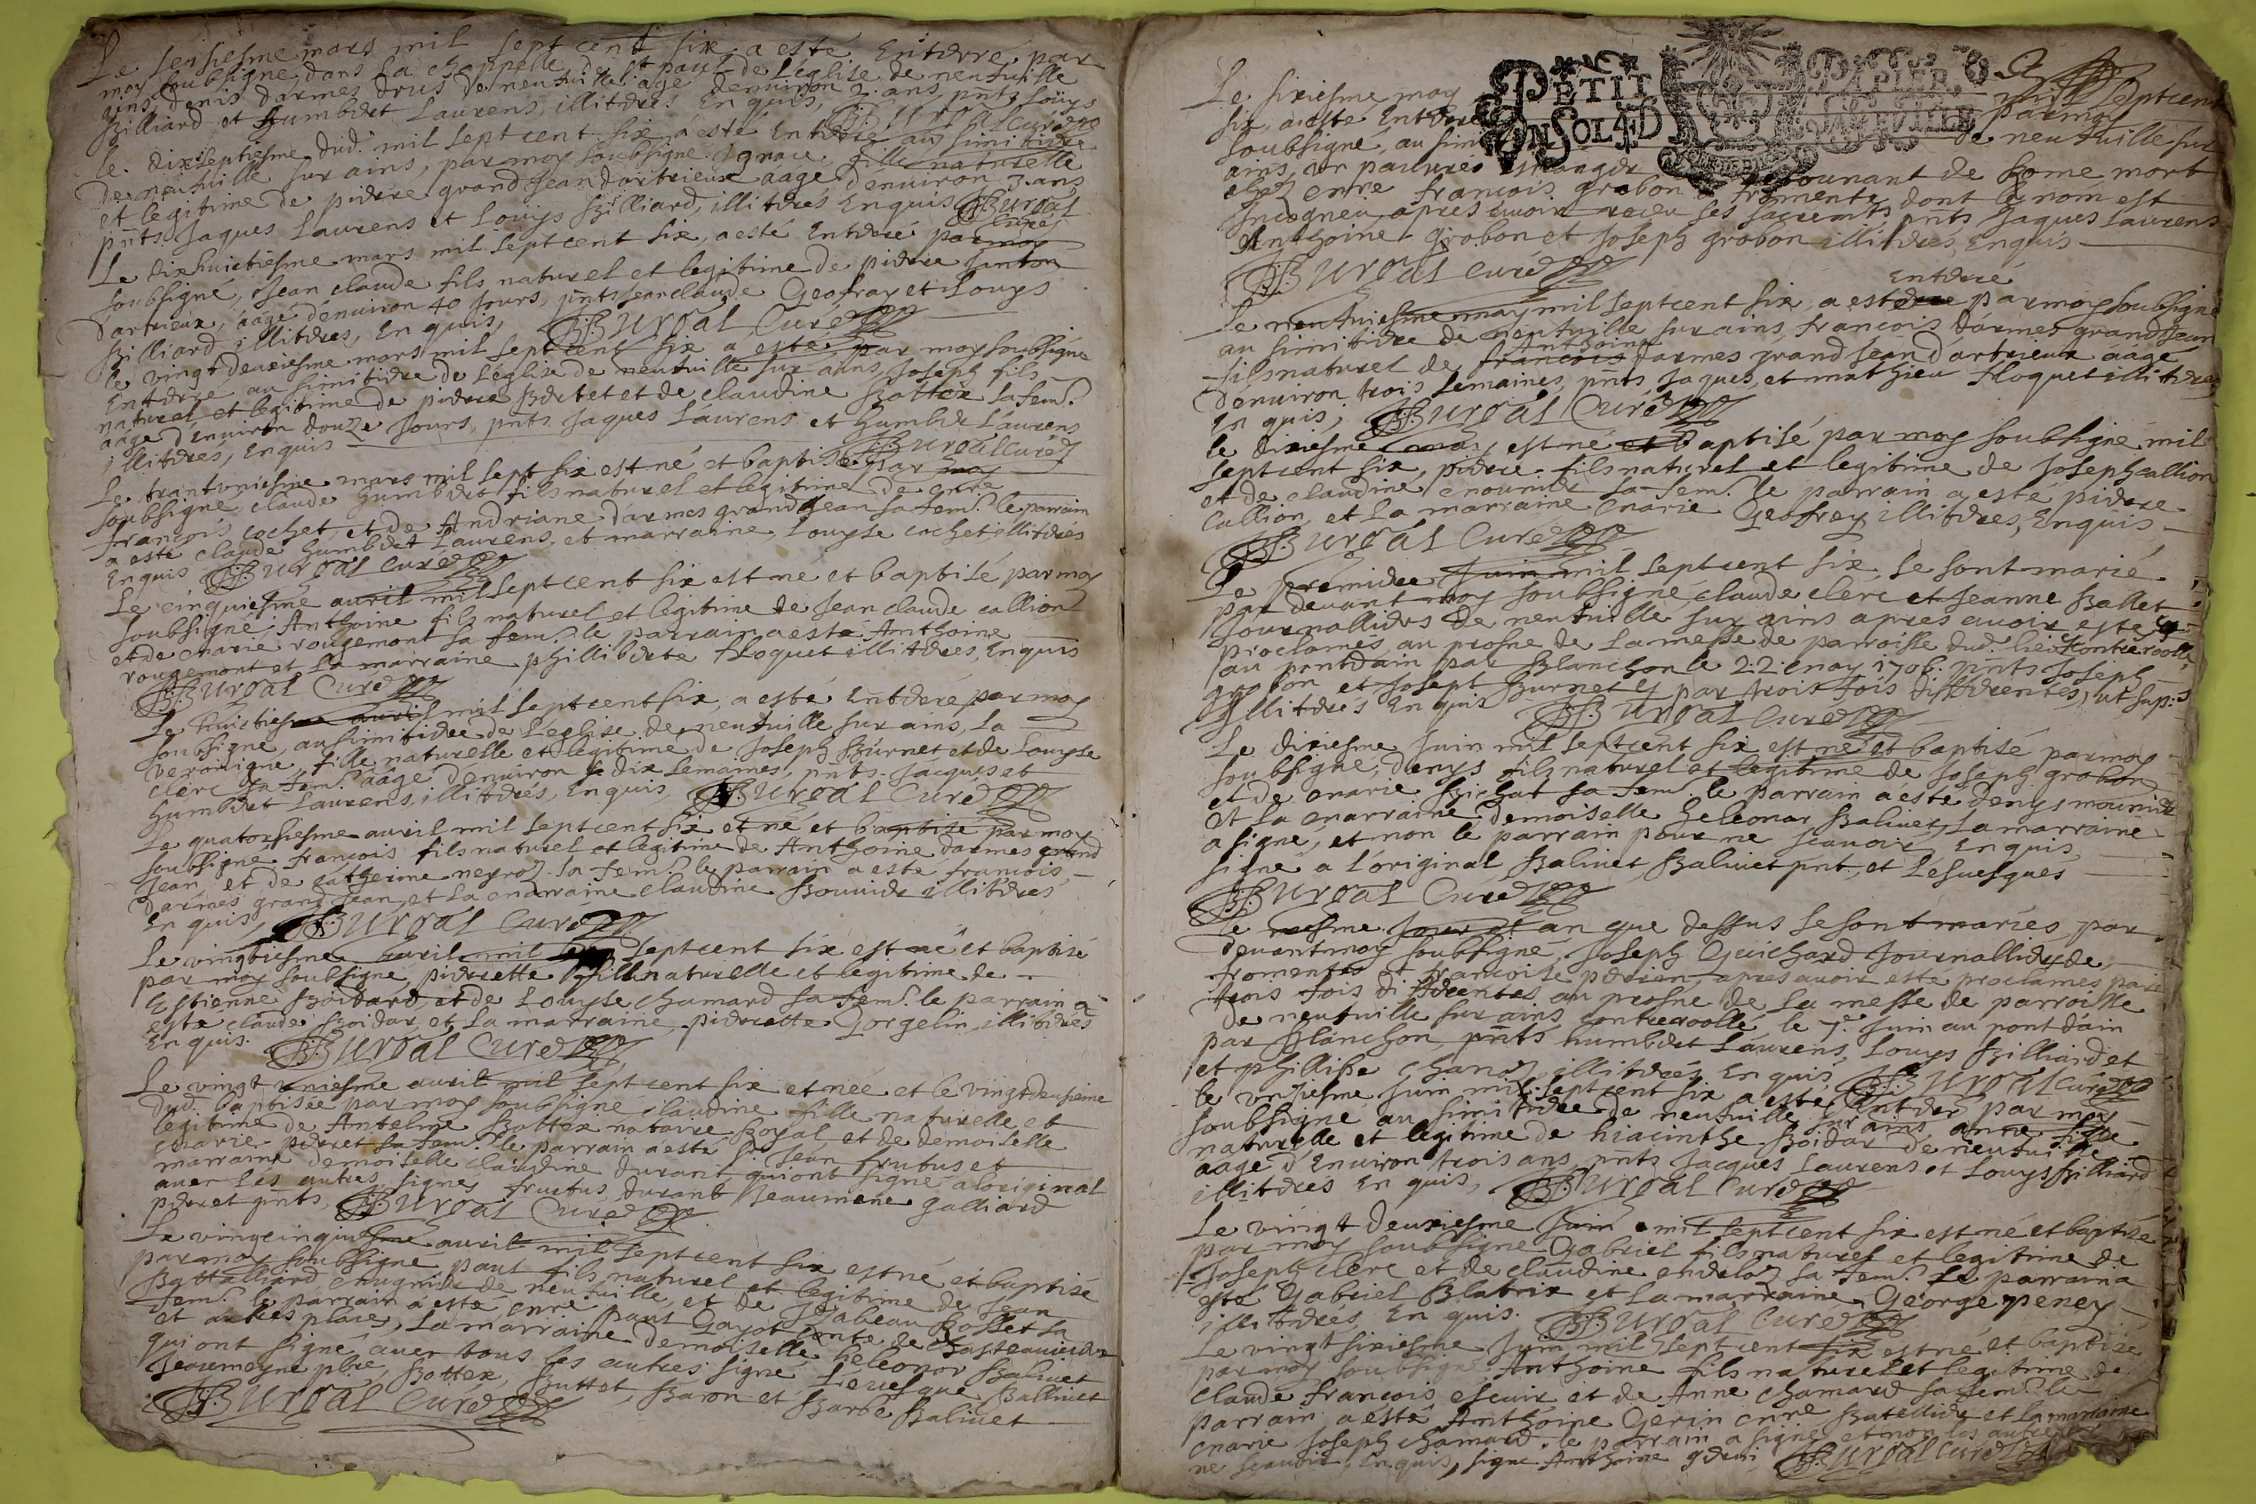 Le seiziesme mars mil sept cent six a esté Enterré par
moy soubsigné dans la chappelle de st paul de L'église de neufville
denis darmes dous de neufuille agé denuiron 2. ans pnts Louys
Billiard et humbert Laurens illiterés Enquis, B: Burgal Curé
le dixseptiesme dud. mil sept cent six a esté Enterré au simitiere
de neufuille sur ains, par moy soubsigné fille naturelle
et légitime de pierre grand Jean dartrieux aagé denuiron 3. ans
pnts Jaques Laurens et Louys Billiard, illiterés Enquis B: Burgal
Curé
Le dixhuictiesme mars mil sept cent six, a esté Enterré par moy
soubsigné, Jean claude fils naturel et legitime de pierre
dartrieux, aagé denuiron 40 jours, pnts Jean claude Geofray et Louys
Billiard illiterés, Enquis, B: Burgal Curé
le vingt deuxiesme mars mil sept cent six a esté par moy soubsigné
Enterré au simitiere de L'eglise de neufuille sur ains, Joseph fils
naturel et legitime de pierre et de claudine Bottex sa fem.
aagé d'enuiron douze Jours, pnts Jaques Laurens et humbert Laurens
illiterés, Enquis B: Burgal Curé
Le trantuniesme mars mil sept six est né et baptisé par moy
soubsigné, claude humbert fils naturel et legitime de
francois cochet, et de Andriane darmes grand Jean sa fem. le parrain
a esté claude humbert Laurens, et marraine Louyse cochet illiterés
Enquis B: Burgal Curé
Le cinquiesme auril mil sept cent six est né et baptisé par moy
soubsigné, Anthoine fils naturel et legitime de Jean claude callion
et de marie rougemont sa fem. le parrain a esté Anthoine
rougemont et la marraine philliberte floquet illiterés, Enquis
B: Burgal Curé
Le huictiesme auril mil sept cent six, a esté Enterré par moy
soubsigné, au simitiere de L'église de neufuille sur ains, La
veronique fille naturelle et legitime de Joseph Burnet et de Louyse
clerc sa fem. aagé denuiron dix semaines, pnts. Jacques et
humbert Laurens, illiterés, Enquis, B: Burgal Curé
Le quatorsiesme auril mil sept cent six et né et baptisé par moy
soubsigné francois fils naturel et legitime de Anthoine darmes grand
Jean et de catherine neyroz sa fem. le parrain a esté francois
darmes grand Jean, et la marraine claudine Bouuier illiterés
Enquis, B: Burgal Curé
Le vingtiesme Auril mil sept cent six est né et baptisé
par moy soubsigné, pierrette fille naturelle et legitime de
Estienne Boidard et de Louyse chamard sa fem. le parrain a
esté claude Boidar, et La marraine, pierrette Gorgelin, illiterés
Enquis. B: Burgal Curé
Le vingt uniesme auril mil sept cent six et née et le vingtdeuxieme
dud. baptisée par moy soubsigné claudine fille naturelle, et
legitime de Antelme Bottex notaire Royal, et de demoiselle
marie pieret sa fem. le parrain a esté Sr. Jean frutus et
marraine demoiselle claudine durant qui ont signé a loriginal
auec les autres, signes fructus, durant Jeaumene Galliard
pieret pnts, B: Burgal Curé
Le vingcinquiesme auril mil sept cent six est né et baptisé
par moy soubsigne paul fils naturel et legitime de Jean
Battalliard de neufuille, et de Isabeau Bollet sa
fem. le parrain a esté paul Gayot conte de chasteauuieux
et autres place, La marraine demoiselle heleonor Baliuet
qui ont signé auec tous les autres signé Leuesque Balliuet
Jeaumegne pbre, Bottex, Buttet, Baron et Barbe Baliuet
B: Burgal Curé
PETIT PAPIER.
UN SOL 4 D LA FEUILLE
Le sixiesme may mil sept cent
six, a esté Enterré par moy
soubsigné, au sim de neufuille sur
ains, un pauure estranger
chez francois grobon a fromente retournant de Rome mort
Incogneu apres auoir receu ses sacrements dont le nom est
pnts Jaques Laurens
Anthoine grobon et Joseph grobon illiterés Enquis
B: Burgal Curé
Enterré
Le neufuiesme may mil sept cent six, a esté par moy soubsigné
au simitiere de neufuille sur ains, francois darmes grand Jean
Anthoine
fils naturel de francois darmes grand Jean dartrieux aagé
denuiron trois semaines, pnts Jaques, et mathieu floquet illiterés
En quis, B: Burgal Curé
le dixiesme may est né et baptisé par moy soubsigné mil
sept cent six, pierre fils naturel et legitime de Joseph callion
et de claudine mounier sa fem. le parrain a esté pierre
callion, et La marraine marie Geofray illiterés, Enquis
B: Burgal Curé
Le premier Juin mil sept cent six, se sont marié
par deuant moy soubsigné, claude clerc et Jeanne Ballet
Journalliers de neufuille sur ains apres auoir esté
proclamés au prosne de La messe de parroisse dud. lieu Contreroollé
au pontdain par Blanchon le 22. may 1706. pnts Joseph
grobon et Josept Burnet par trois fois differentes, ut sup.
Illiterés Enquis B: Burgal Curé
Le dixiesme Juin mil sept cent six est né et baptisé par moy
soubsigné, denys fils naturel et legitime de Joseph grobon
et de marie Bichat sa fem. le parrain a esté denys mounier
et La marraine demoiselle heleonor Baliuet, La marraine
a signé, et non le parrain pour ne scauoir, Enquis
signé a Loriginal Baliuet Baliuet pnt, et Lesuesques
B: Burgal Curé
Le mesme Jour et an que dessus se sont mariés par
deuant moy soubsigné, Joseph Guichard Journallier de
fromentes et francoise perien, apres auoir esté proclamés par
trois fois differentes au prosne de La messe de parroisse
de neufuille sur ains contreroollé le 7e. Juin au pont dain
par Blanchon pnts humbert Laurens, Louys Billiard et
et phillibe chanoz illiterés Enquis B: Burgal Curé
le unziesme Juin mil sept cent six a esté Enterré par moy
soubsigné au simitiere de neufuille sur ains anne fille
naturelle et legitime de hiacinthe Boidar de neufuille
aagé d'Enuiron trois ans, pnts Jacques Laurens et Louys Billiard
illiterés Enquis, B: Burgal Curé
Le vingt deuxiesme Juin mil sept cent six est né et baptisé
par moy soubsigne Gabriel fils naturel et legitime de
Joseph clerc et de claudine sa fem. Le parrain a
esté Gabriel Blatrix et La marraine George peney
illiterés, Enquis. B: Burgal Curé
Le vingt sixiesme Juin mil sept cent six est né et baptisé
par moy soubsigné Anthoine fils naturel et legitime de
claude francois escuir et de Anne chamard sa fem. le
parrain a esté Anthoine Gerin Butellier et la marraine
marie Joseph chamard. le parrain a signé et non les autres
ne scauoir, Enquis, signé Anthoine gerin B: Burgal Curé